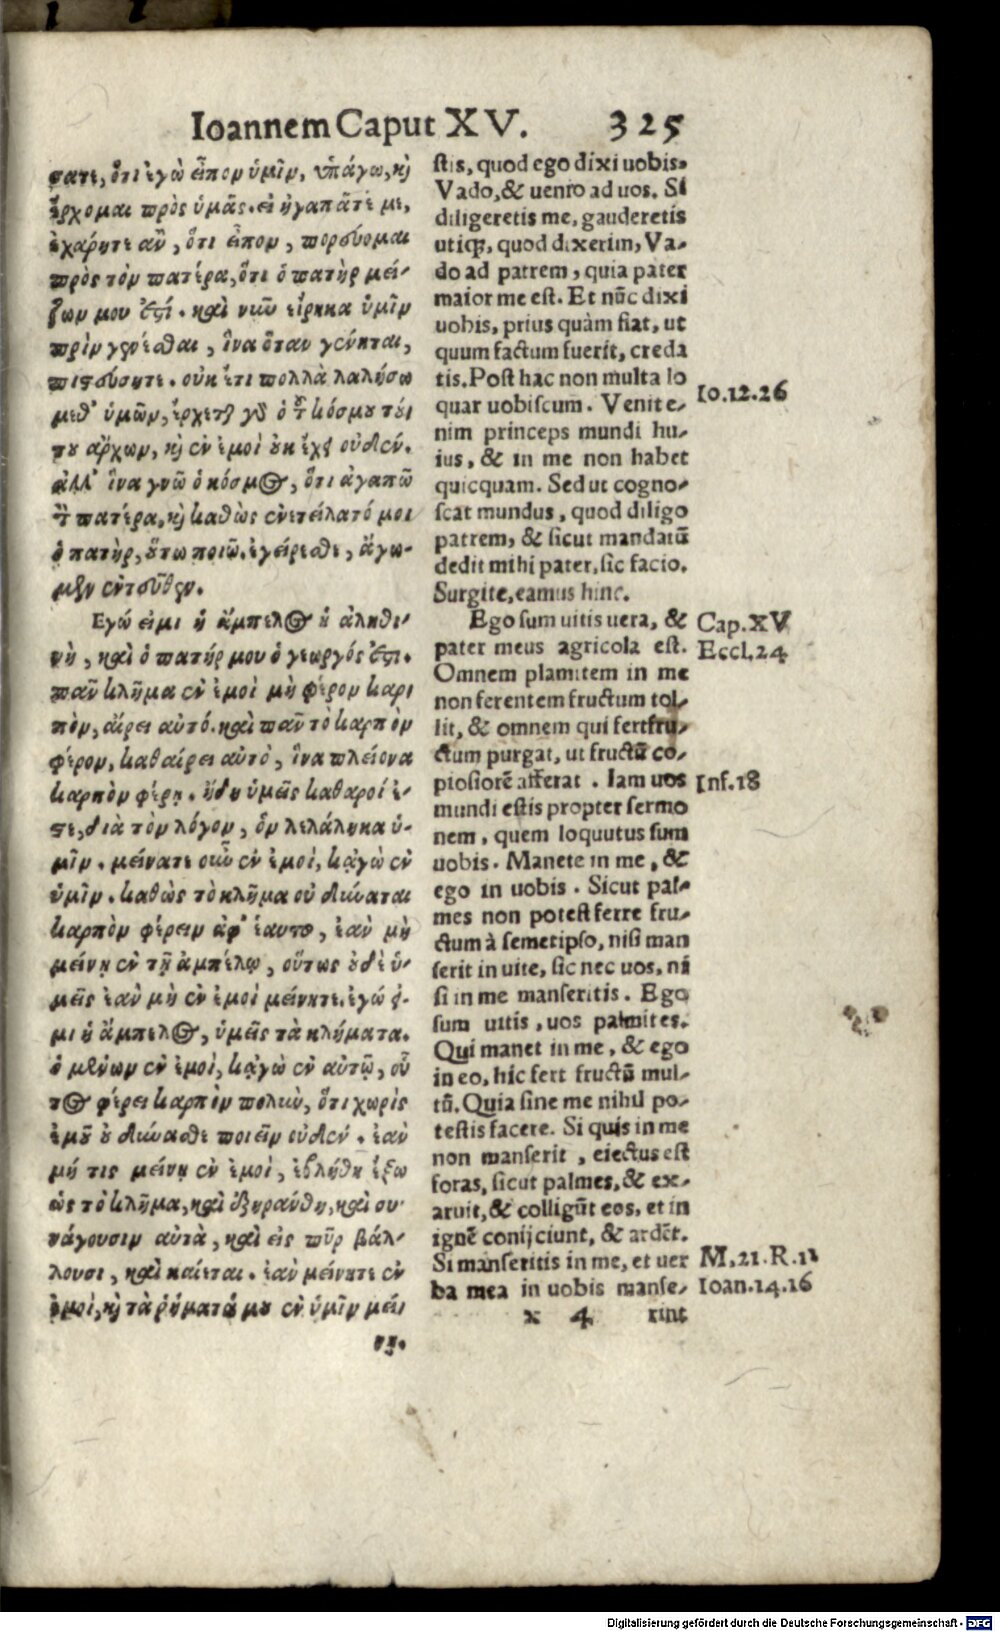 Ioannem Caput XV. 325
σατε, ὅτι ἐγὼ εἶπον ὑμῖν, ὑπάγω, καὶ
ἔρχομαι πρὸς ὑμᾶς. εἰ ἠγαπᾶτέ με,
ἐχάρητε ἂν, ὅτι εἶπον, πορεύομαι
πρὸς τὸν πατέρα, ὅτι ὁ πατὴρ μεί-
ζων μου ἐστί. καὶ νῦν εἴρηκα ὑμῖν
πρὶν γενέσθαι, ἵνα ὅταν γένηται,
πιστεύσητε. οὐκ ἔτι πολλὰ λαλήσω
μεθ' ὑμῶν, ἔρχεται γὰρ ὁ τοῦ κόσμου τού
του ἄρχων, καὶ ἐν ἐμοὶ οὐκ ἔχει οὐδέν.
ἀλλ' ἵνα γνῶ ὁ κόσμος, ὅτι ἀγαπῶ
τὸν πατέρα, καὶ καθὼς ἐνετείλατό μοι
ὁ πατὴρ, οὕτω ποιῶ. ἐγείρεσθε, ἄγω-
μεν ἐντεῦθεν.
Εγώ εἰμι ἡ ἄμπελος ἡ ἀληθι-
νὴ, καὶ ὁ πατήρ μου ὁ γεωργός ἐστι.
πᾶν κλῆμα ἐν ἐμοὶ μὴ φέρον καρ
πὸν, αἴρει αὐτό. καὶ πᾶν τὸ καρπὸν
φέρον, καθαίρει αὐτὸ, ἵνα πλείονα
καρπὸν φέρῃ. ἤδη ὑμεῖς καθαροί ἐ-
στε, διὰ τὸν λόγον, ὃν λελάληκα ὑ-
μῖν. μείνατε οὖν ἐν ἐμοί, κᾀγὼ ἐν
ὑμῖν. καθὼς τὸ κλῆμα οὐ δύναται
καρπὸν φέρειν ἀφ' ἑαυτοῦ, ἐὰν μὴ
μείνῃ ἐν τῇ ἀμπέλῳ, οὕτως οὐδὲ ὑ-
μεῖς ἐὰν μὴ ἐν ἐμοὶ μείνητε. ἐγώ εἰ-
μι ἡ ἄμπελος, ὑμεῖς τὰ κλήματα.
ὁ μένων ἐν ἐμοὶ, κᾀγὼ ἐν αὐτῷ, οὗ
τος φέρει καρπὸν πολὺν, ὅτι χωρὶς
ἐμοῦ οὐ δύνασθε ποιεῖν οὐδέν. ἐὰν
μή τις μείνῃ ἐν ἐμοὶ, ἐβλήθη ἔξω
ὡς τὸ κλῆμα, καὶ ἐξηράνθη, καὶ συ-
νάγουσιν αὐτὰ, καὶ εἰς πῦρ βάλ-
λουσι, καὶ καίεται. ἐὰν μείνητε ἐν
ἐμοί, καὶ τὰ ῥήματά μου ἐν ὑμῖν μεί
νῃ.
stis, quod ego dixi uobis.
Vado, & uenio ad uos. Si
diligeretis me, gauderetis
utiqꝫ, quod dixerim, Va-
do ad patrem, quia pater
maior me est. Et nūc dixi
uobis, prius quàm fiat, ut
quum factum fuerit, creda
tis. Post hac non multa lo
quar uobiscum. Venit e-
nim princeps mundi hu-
ius, & in me non habet
quicquam. Sed ut cogno-
scat mundus, quod diligo
patrem, & sicut mandatū
dedit mihi pater, sic facio.
Surgite, eamus hinc.
Ego sum uitis uera, &
pater meus agricola est.
Omnem plamitem in me
non ferentem fructum tol-
lit, & omnem qui fert fru-
ctum purgat, ut fructū co-
piosiorē afferat. Iam uos
mundi estis propter sermo
nem, quem loquutus sum
uobis. Manete in me, &
ego in uobis. Sicut pal-
mes non potest ferre fru-
ctum à semetipso, nisi man
serit in uite, sic nec uos, ni
si in me manseritis. Ego
sum uitis, uos palmites.
Qui manet in me, & ego
in eo, hic fert fructū mul-
tū. Quia sine me nihil po-
testis facere. Si quis in me
non manserit, eiectus est
foras, sicut palmes, & ex-
aruit, & colligūt eos, et in
ignē conijciunt, & ardēt.
Si manseritis in me, et uer
ba mea in uobis manse-
x 4 rint
Io.12.26
Cap.XV
Eccl.24
Inf.18
M.21.R.11
Ioan.14.16
Digitalisierung gefördert durch die Deutsche Forschungsgemeinschaft - DFG